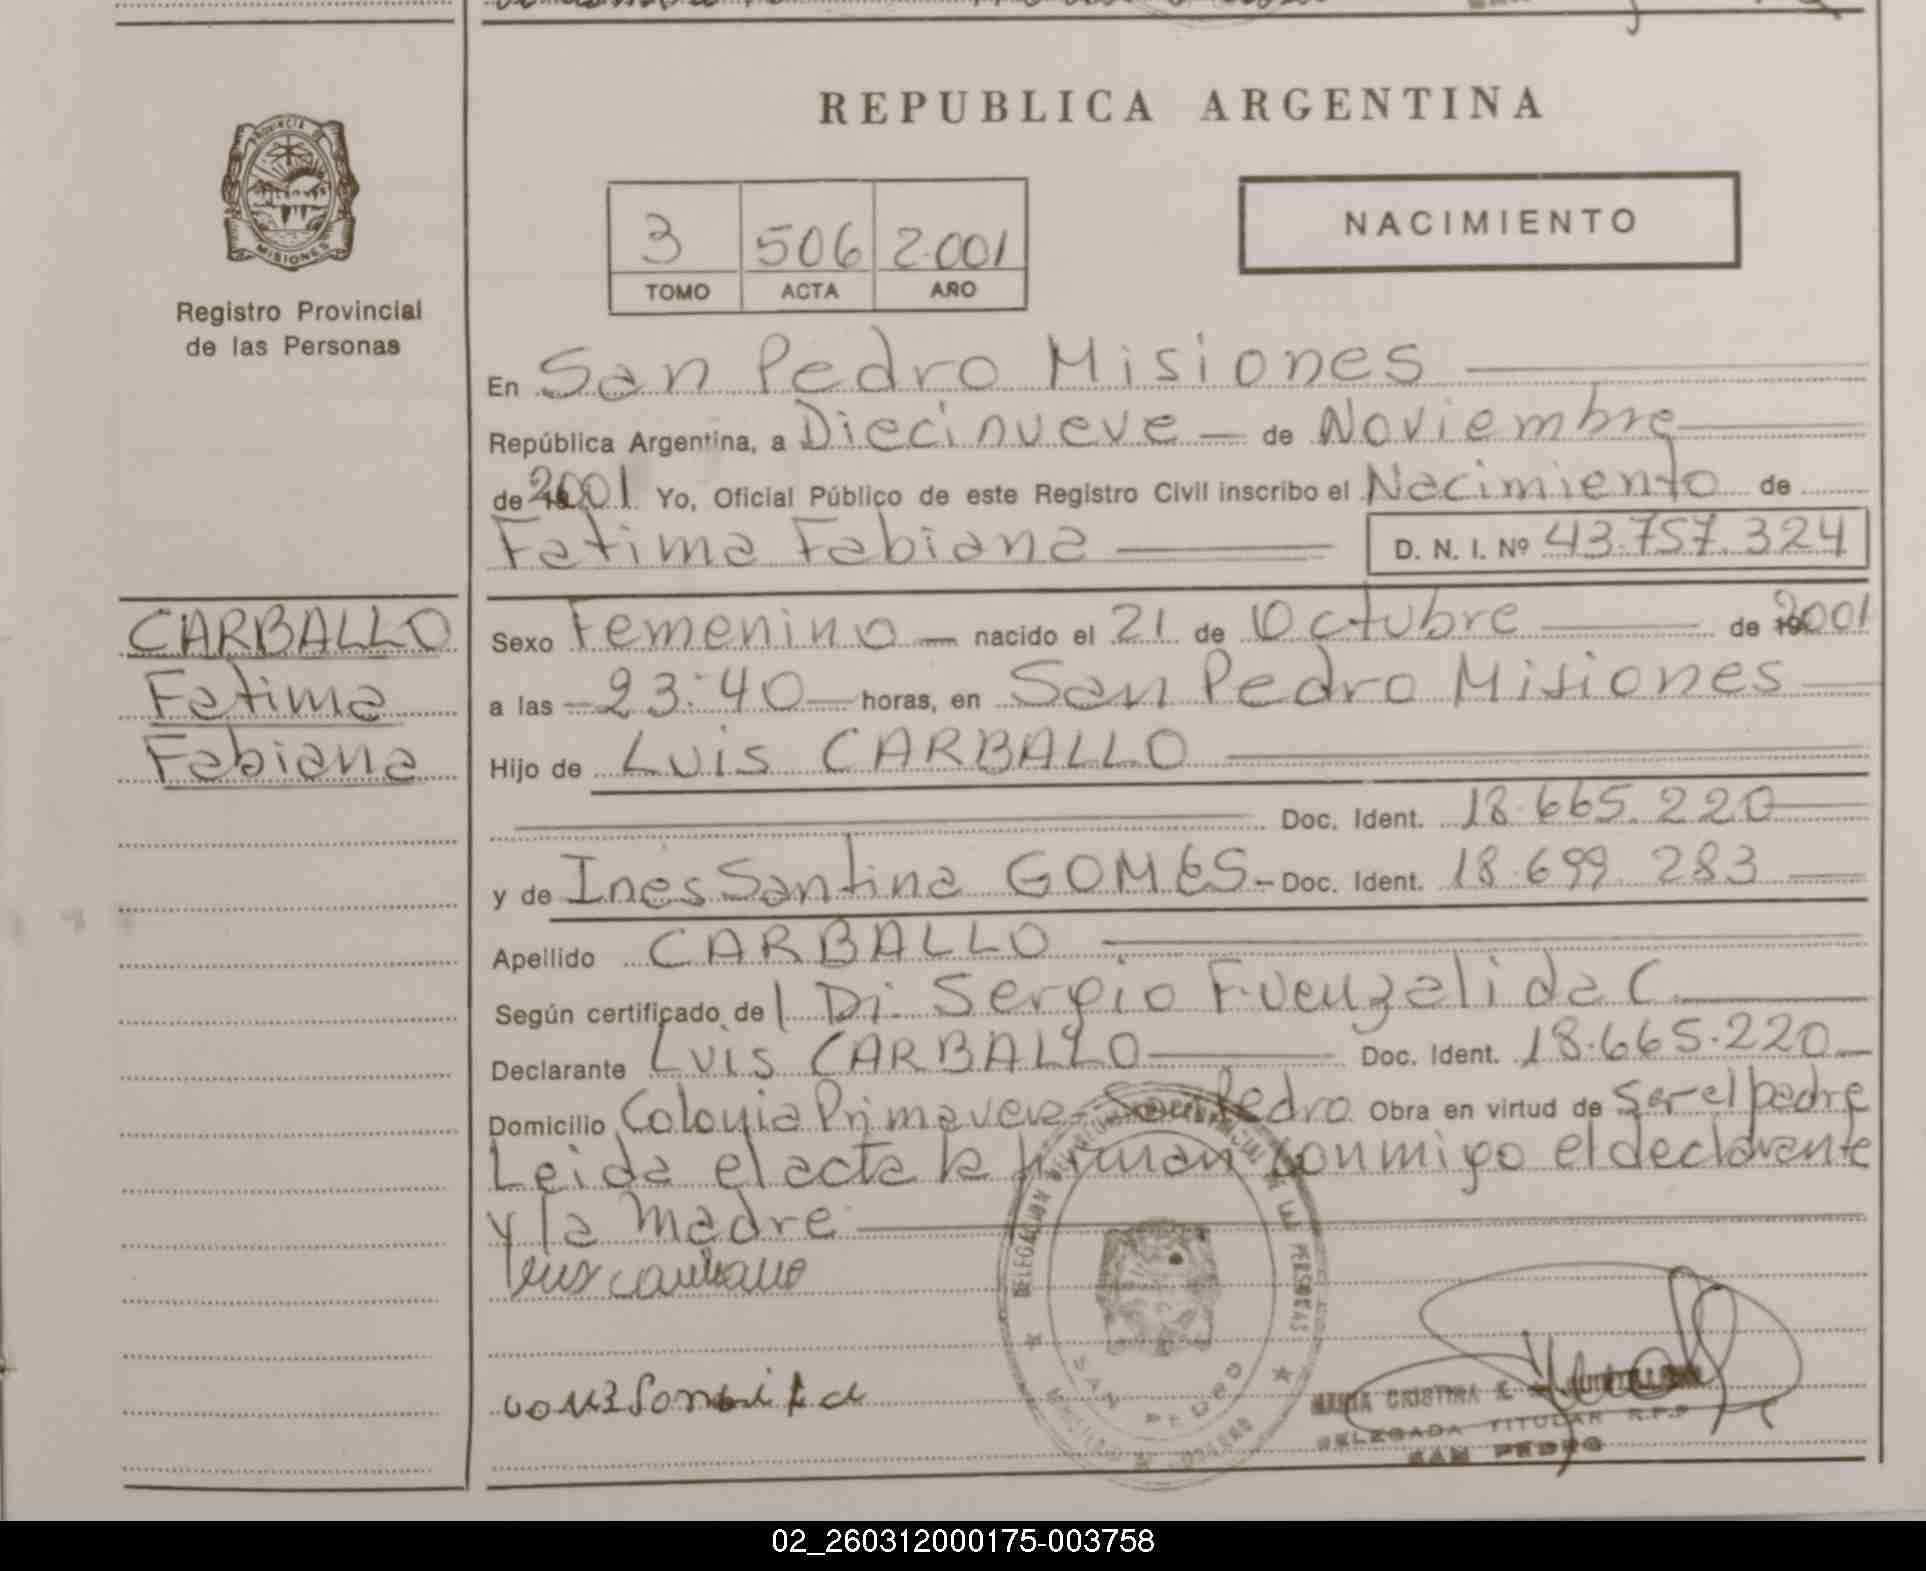 REPUBLICA ARGENTINA
PROVINCIA DE
MISIONES
Registro Provincial
de las Personas
3 506 2.001
TOMO ACTA AÑO
NACIMIENTO
En San Pedro Misiones
República Argentina, a Diecinueve de Noviembre
de 2001 Yo, Oficial Público de este Registro Civil inscribo el Nacimiento de
Fatima Fabiana D. N. I. Nº 43.757.324
CARBALLO
Fatima
Fabiana
Sexo Femenino nacido el 21 de Octubre de 2001
a las 23:40 horas, en San Pedro Misiones
Hijo de Luis CARBALLO
Doc. Ident. 18.665.220
y de Ines Santina GOMES Doc. Ident. 18.699.283
Apellido CARBALLO
Según certificado de Sergio Fuenzalida C.
Declarante Luis CARBALLO Doc. Ident. 18.665.220
Domicilio Colonia Primavera San Pedro Obra en virtud de Ser el padre
Leida el acta la firman conmigo el declarante
y la madre
DELEGACION DE LAS PERSONAS
SAN PEDRO
MARIA CRISTINA E.
DELEGADA TITULAR R.P.P
SAN PEDRO
02_260312000175-003758